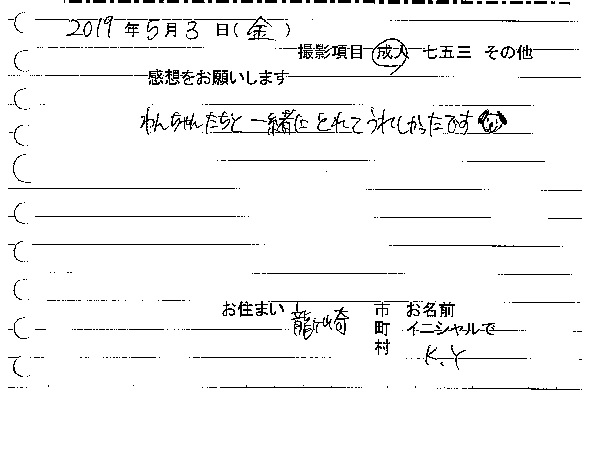 2019年5月3日(金)
撮影項目 成人 七五三 その他
感想をお願いします
わんちゃんたちと一緒にとれてうれしかったです
お住まい 龍ヶ崎 市 町 村 お名前 イニシャルで
K.Y